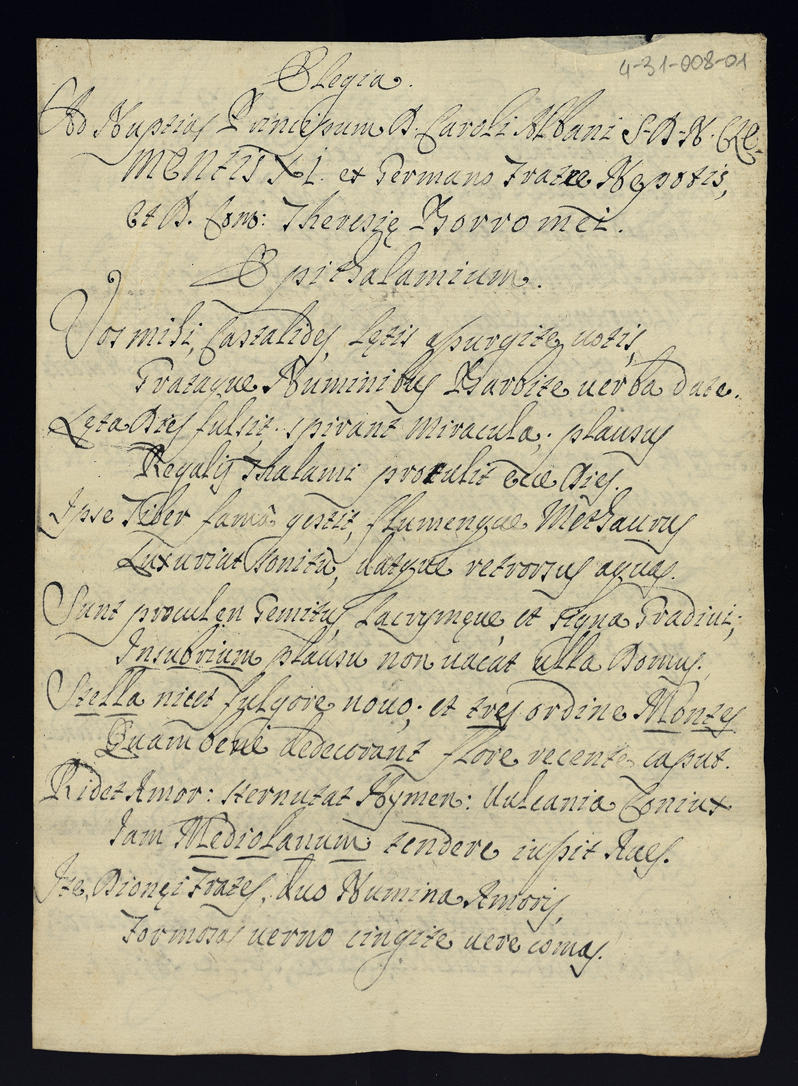 4-31-008-01
Elegia.
Ad Nuptias Principum D. Caroli Albani S. D. N. Cle-
mentis XI. et Germano Fratre Nepotis,
et D. Theresię Borromei.
Epithalamium.
Vos mihi, Castalides, lętis assurgite votis,
Grataque Numinibus Barbite verba date.
Lęta Dies fulsit: spirant miracula; plausus
Regalis Thalami protulit ecce Dies.
Ipse Tiber famâ gestit, flumenque Methaurus
Luxuriat sonitu, datque retrorsus aquas.
Sunt procul en Gemitus, Lacrymęque, et signa Gradivi;
Insubrium plausu non vacat ulla Domus.
Stella nitet fulgore novo; et tres ordine Montes
Quam bene dedecorant flore recente caput.
Ridet Amor: sternutat Hymen: Vulcania Coniux
Iam Mediolanum tendere iussit Aues.
Ite, Dionęi Frates, duo Numina Amoris,
Formosas verno cingite vere comas.